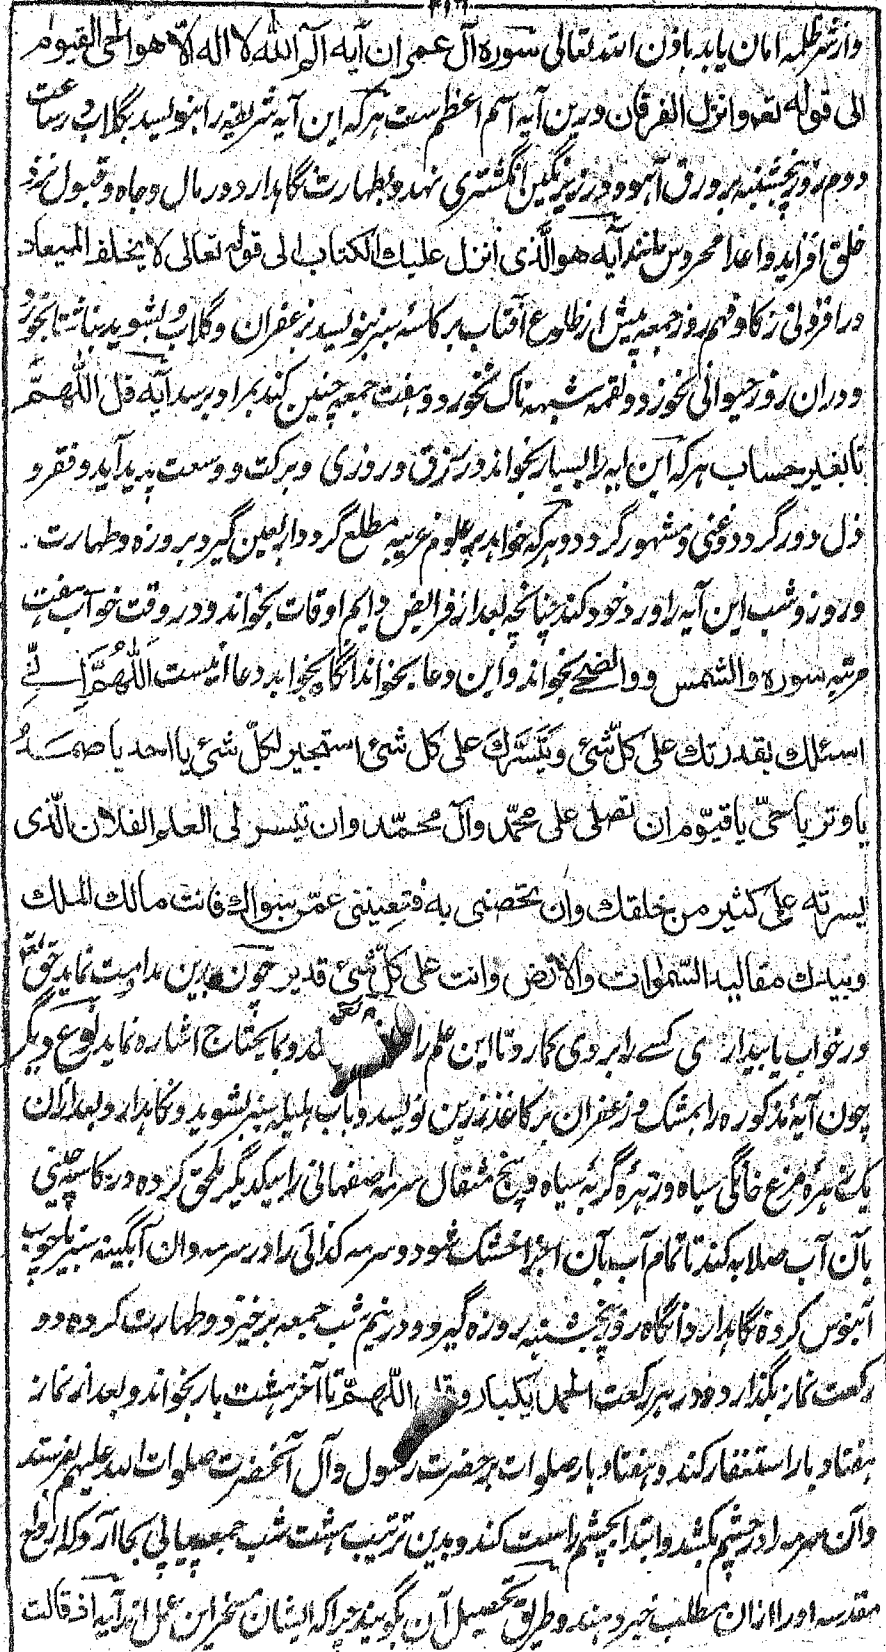 ۴۱۶
واز شر ظلمه امان یابد باذن الله تعالی سوره آل عمران آیه الٓم الله لا اله الّا هو الحی القیوم
الی قوله تعه وانزل الفرقان درین آیه اسم اعظم ست هرکه این آیه شریفه را بنویسد بگلاب در ساعت
دوم روز پنجشنبه بر ورق آهو و در زیر نگین انگشتری نهد و بطهارت نگاهدارد در مال و جاه و قبول نزد
خلق افزاید و از اعدا محروس ماند آیه هو الّذی انزل علیك الکتاب الی قوله تعالی لا یخلف المیعاد
در افزونی زکا و فهم روز جمعه پیش از طلوع آفتاب بر کاسه سبز بنویسد بزعفران و گلاب و بشوید بناشتا بخورد
و دران روز حیوانی نخورد و لقمه شبهه ناک نخورد و هفت جمعه چنین کند بمراد برسد آیه قل اللّٰهمّ
تا بغیر حساب هرکه این آیه را بسیار بخواند در رزق و روزی و برکت و وسعت پدید آید و فقر و
ذل دور گردد و غنی و مشهور گردد و هرکه خواهد بر علوم غریبه مطلع گردد اربعین گیرد بروزه و طهارت
و روز و شب این آیه را ورد خود کند چنانچه بعد از فرایض دایم اوقات بخواند و در وقت خواب هفت
مرتبه سوره والشمس و والضحی بخواند و این دعا بخواند آنگاه بخوابد دعا اینست اَللّٰهُمَّ اِنّی
اسئلك بقدرتك علی کلّ شئ و یَسَّرَكَ علی کل شئ استجیر لکلّ شئ یا احد یا صمد
یا وتر یا حیّ یا قیّوم ان تصلی علی محمّد و آل محمّد وان تیسر لی العلم الفلان الّذی
یسرته علی کثیر من خلقك وان تخصنی به فتعیننی عمّن سواك فانت مالك الملك
وبیدك مقالید السّمٰوات والارض وانت علی کلّ شئ قدیر چون بدین مداومت نماید حق تعه
در خواب یا بیداری کسے را بروی گمارد تا این علم را دهد و بما یحتاج اشاره نماید نوع دیگر
چون آیهٔ مذکوره را بمشک و زعفران بر کاغذ زرین نویسد و بآب هلیله سبز بشوید و نگاهدارد و بعد ازان
یک زهرهٔ مرغ خانگی سیاه و زهرهٔ گربه سیاه و پنج مثقال سرمه اصفهانی را بیکدیگر ملحق کرده در کاسهٔ چینی
بآن آب صلایه کند تا تمام آب بآن اجزا خشک شود و سرمه گذانی را در سرمه دان آبگینه سبز با چوب
آبنوس کرده نگاهدارد آنگاه روز پنجشنبه روزه گیرد و در نیم شب جمعه برخیزد و طهارت کرده دو
رکعت نماز بگذارد و در هر رکعت الحمد یکبار و قل اللّٰهمّ تا آخر هشت بار بخواند و بعد از نماز
هفتاد بار استغفار کند و هفتاد بار صلوات بر حضرت رسول و آل آنحضرت صلوات الله علیهم بفرستد
و آن سرمه را در چشم بکشد و ابتدا بچشم راست کند و بدین ترتیب هشت شب جمعه پیاپی بجا آرد که ارواح
مقدسه او را ازان مطلب خبر دهند و طریق تحصیل آن بگویند چرا که ایشان مسخر این عمل اند آیه اذ قالت